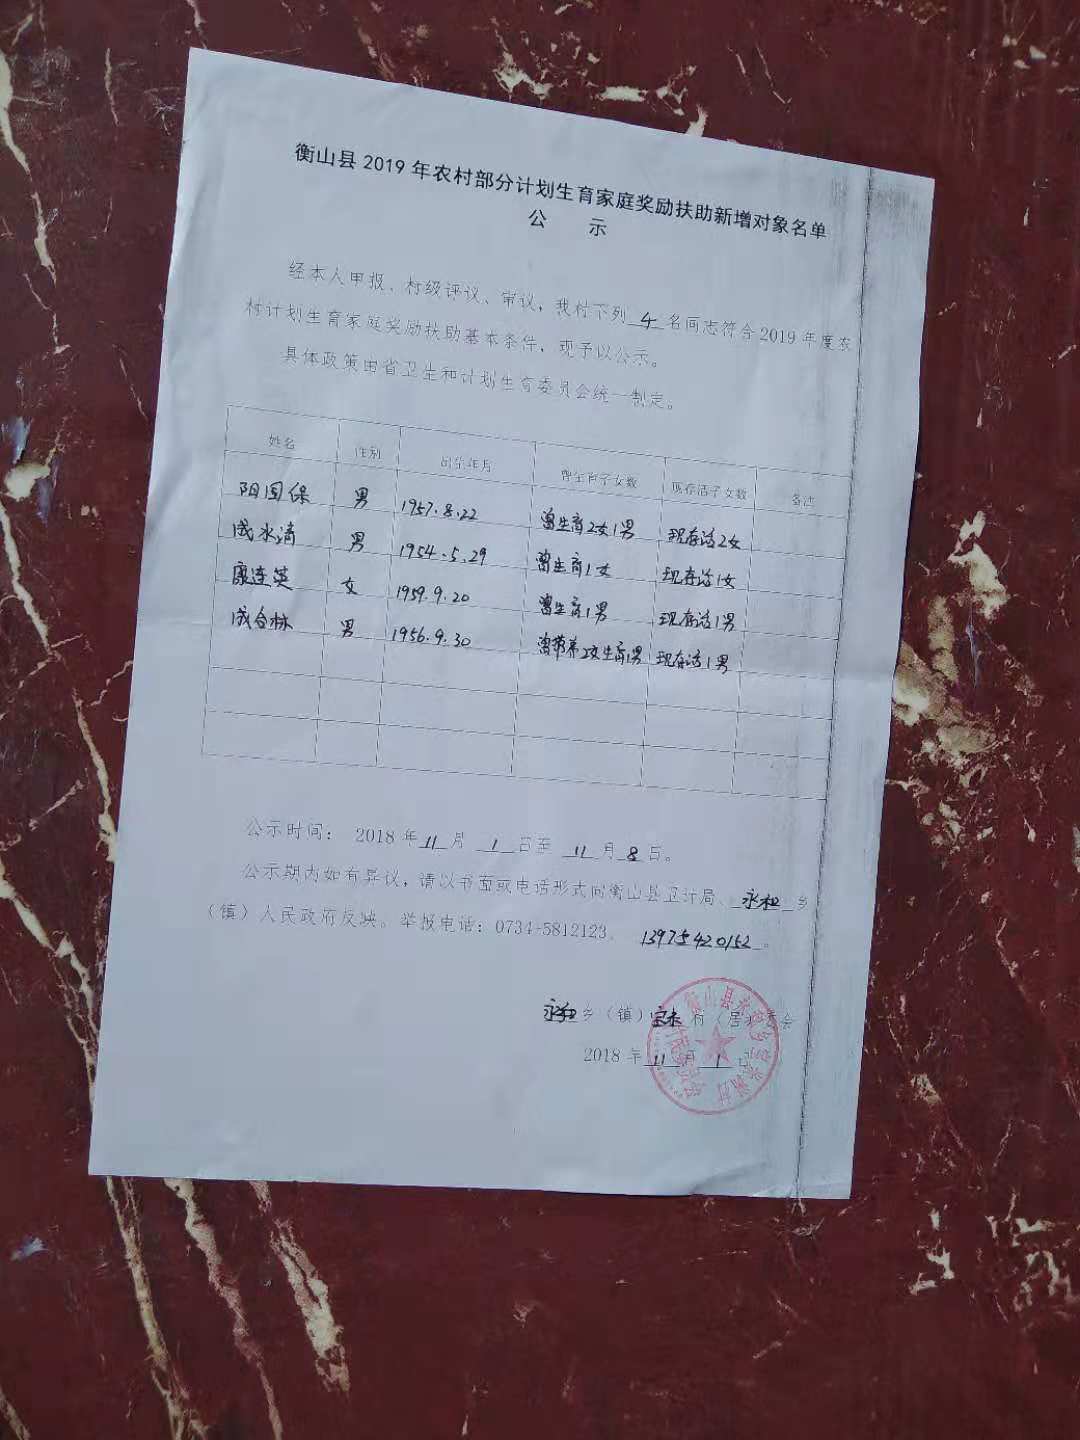 衡山县2019年农村部分计划生育家庭奖励扶助新增对象名单
公 示
经本人申报、村级评议、审议，我村下列 4 名同志符合2019年度农
村计划生育家庭奖励扶助基本条件，现予以公示。
具体政策由省卫生和计划生育委员会统一制定。
姓名 性别 出生年月 曾生育子女数 现存活子女数 备注
阳国保 男 1957.8.22 曾生育2女1男 现存活2女
成水清 男 1954.5.29 曾生育1女 现存活1女
康连英 女 1959.9.20 曾生育1男 现存活1男
成合林 男 1956.9.30 曾带养2女生育1男 现存活1男
公示时间： 2018年 11 月 1 日至 11 月 8 日。
公示期内如有异议，请以书面或电话形式向衡山县卫计局、永和 乡
（镇）人民政府反映。举报电话：0734-5812123、 13975420152 。
永和乡（镇） 村（居）委会
2018年 11 月 1 日